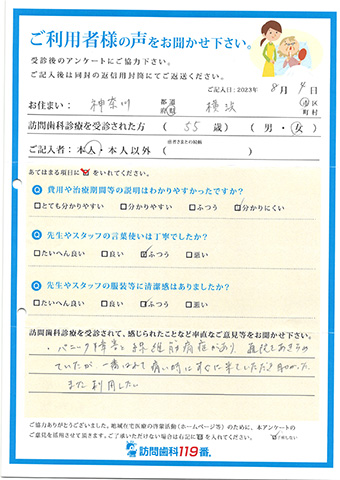 ご利用者様の声をお聞かせ下さい。
受診後のアンケートにご協力下さい。
ご記入後は同封の返信用封筒にてご返送ください。
ご記入日：2023年 8月 4日
お住まい： 神奈川 都道府県 横浜 市区町村
訪問歯科診療を受診された方 （ 55 歳） （ 男・女 ）
ご記入者：本人・本人以外（ 患者さまとの続柄 ）
あてはまる項目に☑をいれてください。
Q 費用や治療期間等の説明はわかりやすかったですか？
□とても分かりやすい □分かりやすい □ふつう ☑分かりにくい
Q 先生やスタッフの言葉使いは丁寧でしたか？
□たいへん良い □良い ☑ふつう □悪い
Q 先生やスタッフの服装等に清潔感はありましたか？
□たいへん良い □良い ☑ふつう □悪い
訪問歯科診療を受診されて、感じられたことなど率直なご意見等をお聞かせ下さい。
・パニック障害と線維筋痛症があり
ていたが 痛い時にすぐに来ていただけ
また利用したい
ご協力ありがとうございました。地域在宅医療の啓蒙活動（ホームページ等）のために、本アンケートの
ご意見を活用させて頂きます。ご了承いただけない場合は右記に☑を入れてください。 □了承しない
訪問歯科119番®